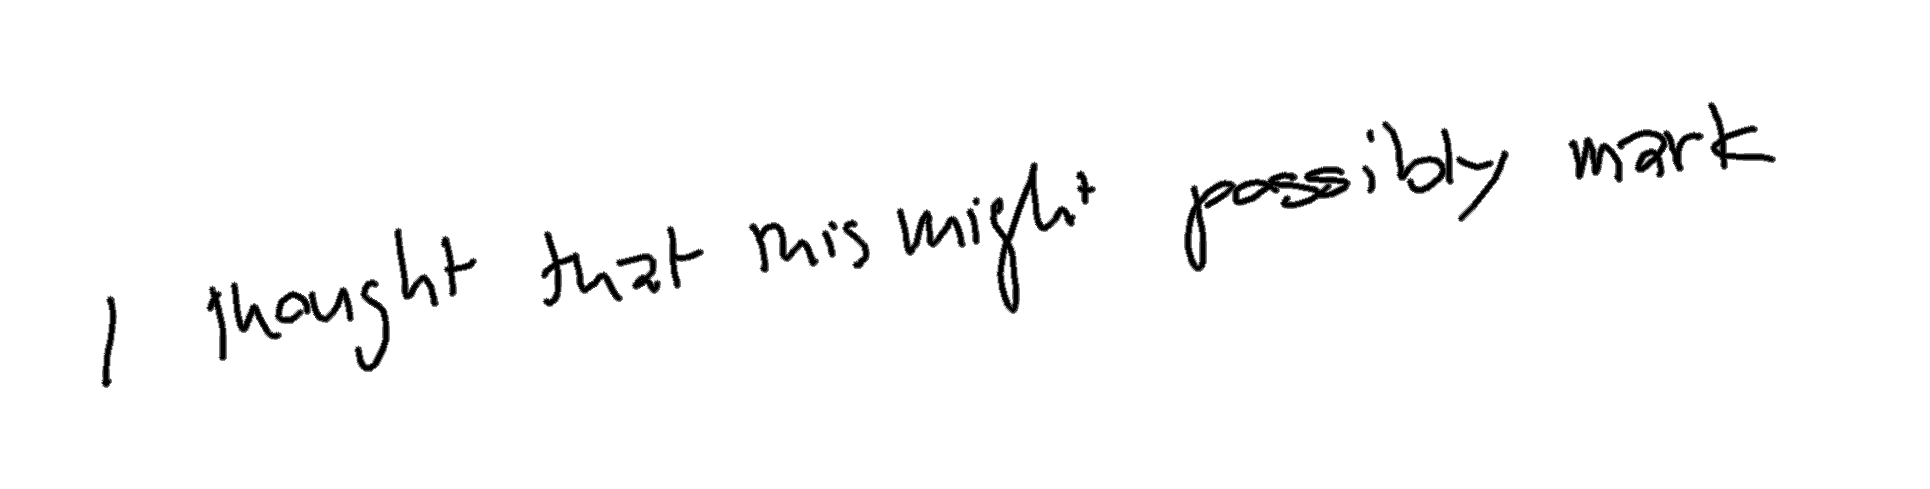 I thought that this might possibly mark